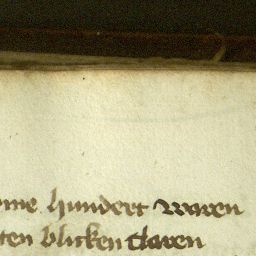 ume hundert waren
ten blicken claren